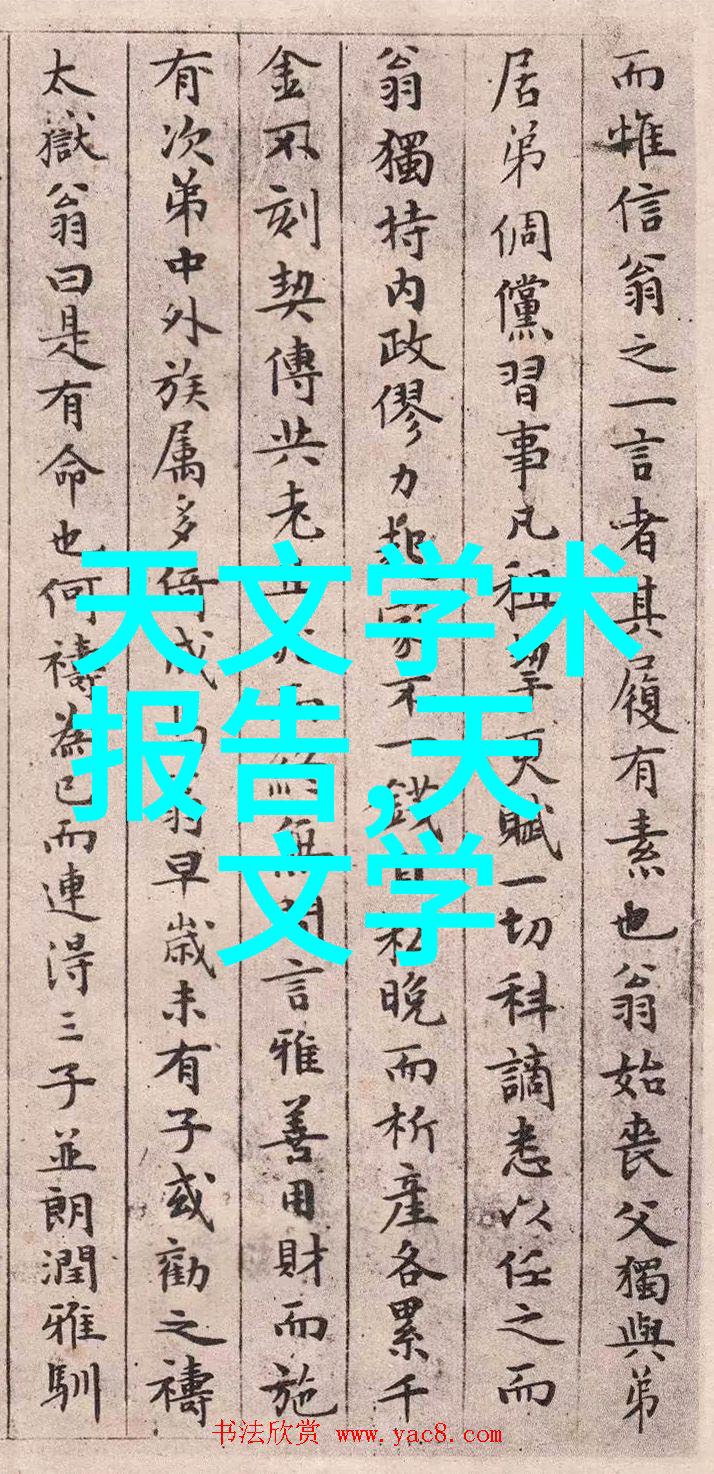 而惟信翁之一言者其履有素也翁始喪父獨與弟
居弟倜儻習事凡租更賦一切科謫悉以任之而
翁獨持内政僇力起家不一錢私晚而析產各累千
金不刻契傳共老且無間言雅善用財而施
有次第中外族属多倚成翁早歳未有子或勸之禱
太嶽翁曰是有命也何禱為已而連得三子並朗潤雅馴
天文学术
报告,天
文学
书法欣赏 www.yac8.com